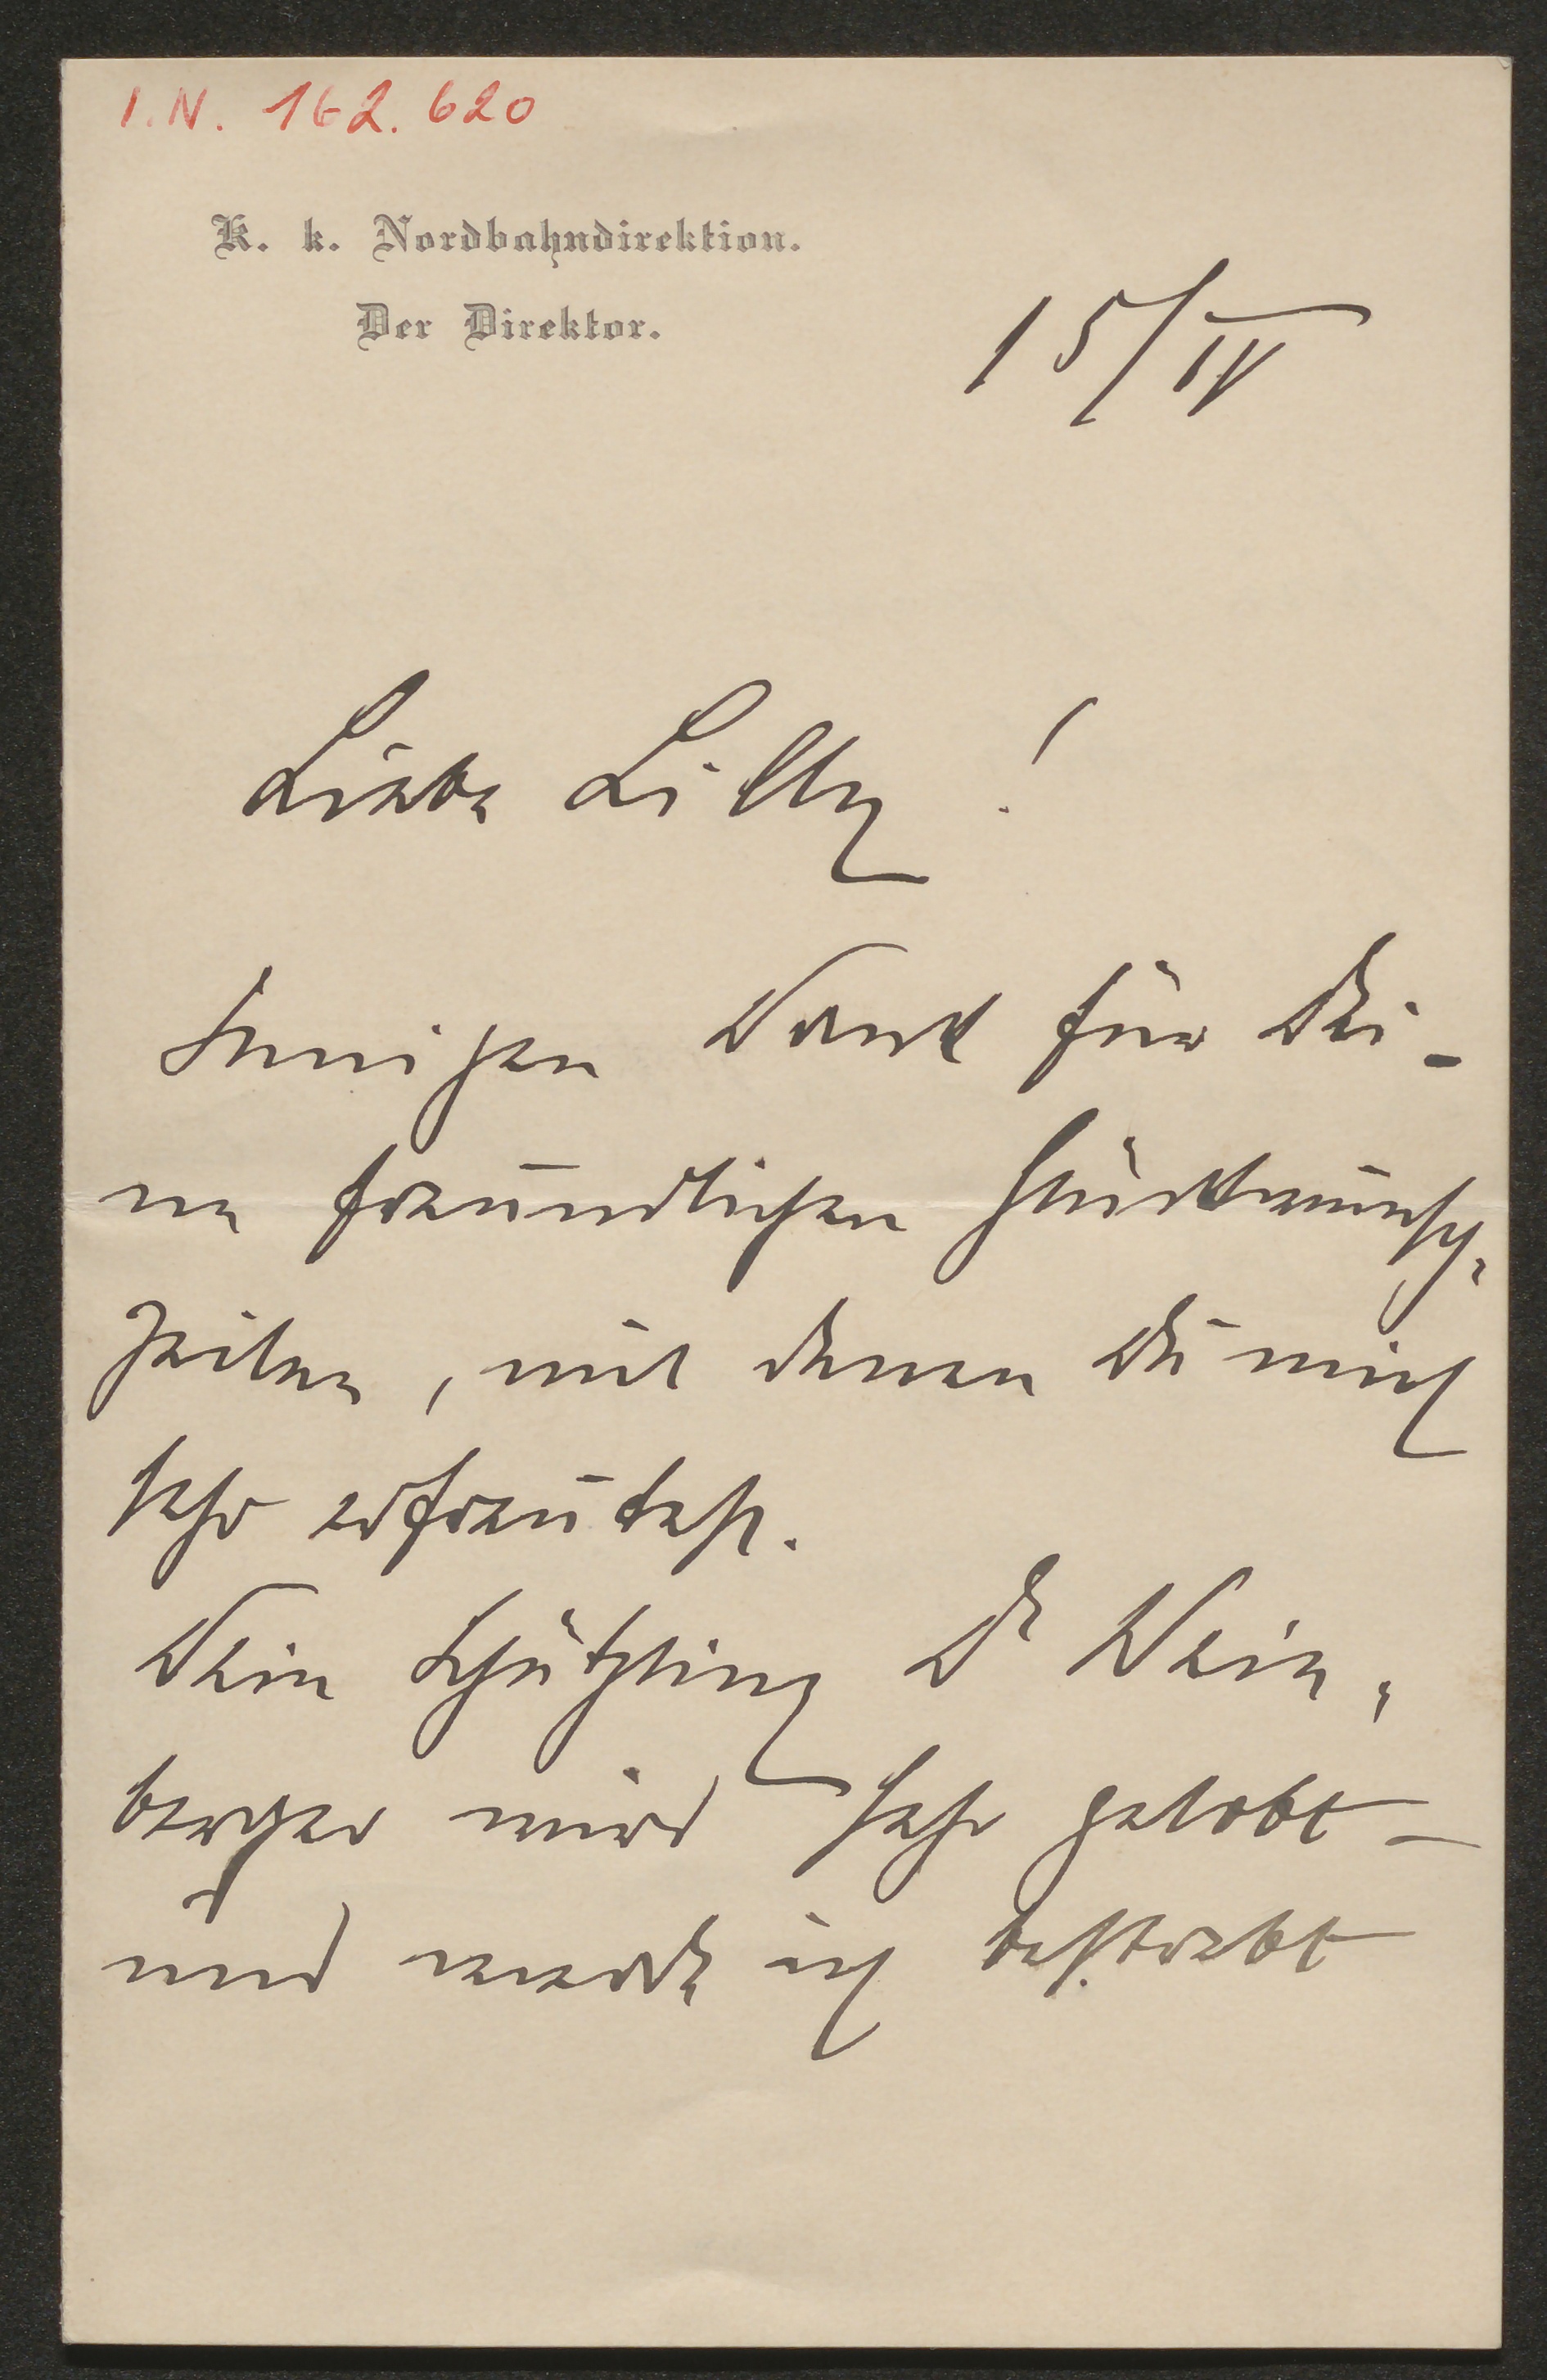 I.N. 162.620
K. k. Nordbahndirektion.
Der Direktor.
15/IV
Liebe Lilly !
Innigen Dank für Dei-
ne freundlichen Glückwunsch-
zeilen, mit denen Du mich
sehr erfreutest.
Dein Schützling Dr Wein-
berger wird sehr gelobt –
und werde ich bestrebt